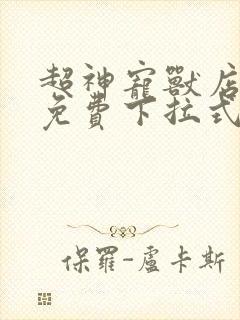 超神寵獸店
免費下拉式
保羅-盧卡斯